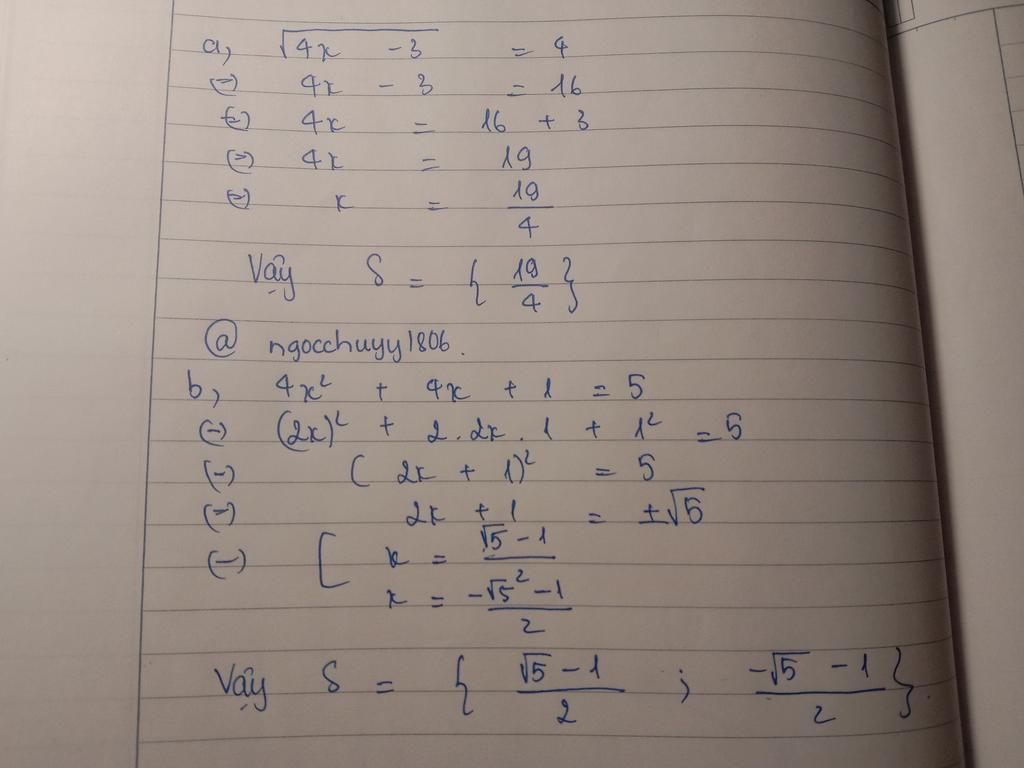 a, √(4x - 3) = 4
(=) 4x - 3 = 16
(=) 4x = 16 + 3
(=) 4x = 19
(=) x = 19/4
Vậy S = { 19/4 }
@ ngocchuyy1806.
b, 4x² + 4x + 1 = 5
(=) (2x)² + 2 . 2x . 1 + 1² = 5
(=) ( 2x + 1)² = 5
(=) 2x + 1 = ±√5
(=) [ x = (√5 - 1)/2
x = (-√5 - 1)/2
Vậy S = { (√5 - 1)/2 ; (-√5 - 1)/2 }.